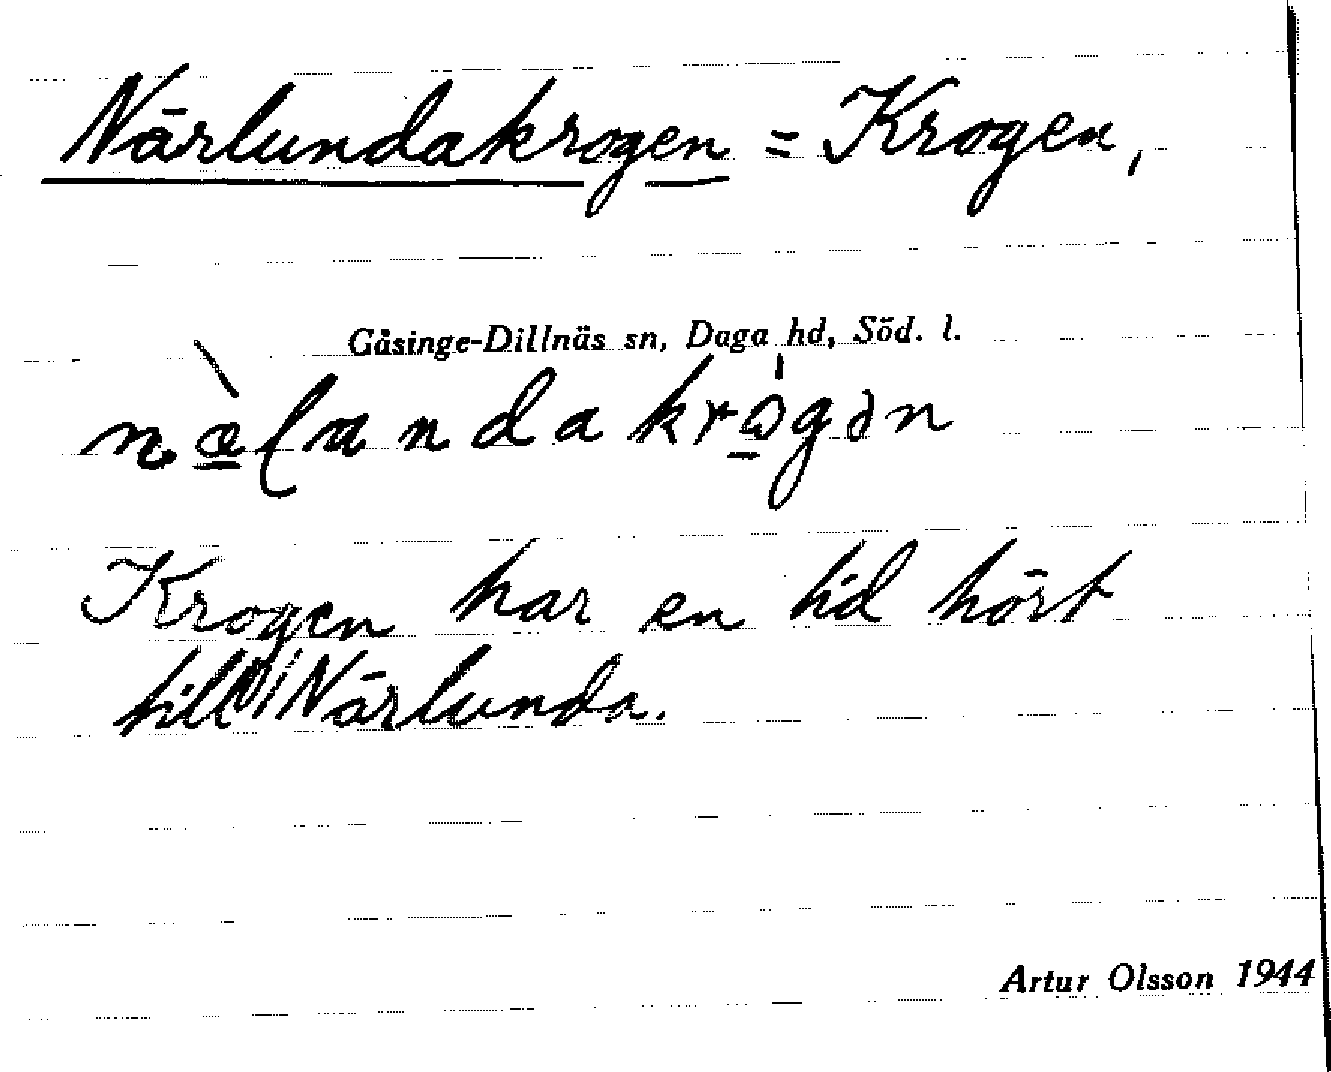 Närlundakrogen = Krogen,
Gåsinge-Dillnäs sn, Daga hd, Söd. l.
Krogen har en tid hört
till Närlunda.
Artur Olsson 1944